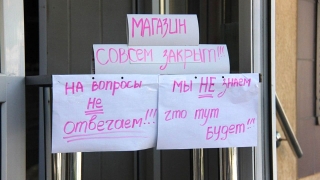 МАГАЗИН
СОВСЕМ ЗАКРЫТ!!!
НА ВОПРОСЫ
НЕ
ОТВЕЧАЕМ!!!
МЫ НЕ ЗНАЕМ
ЧТО ТУТ
БУДЕТ!!!